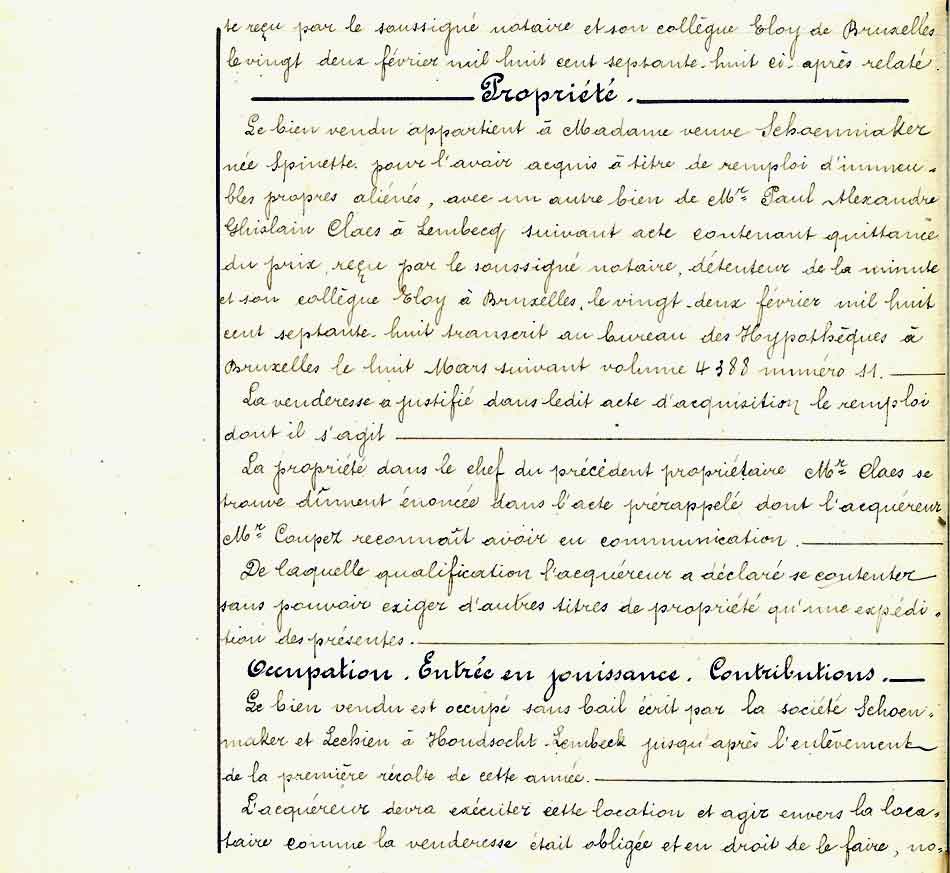 te reçu par le soussigné notaire et son collègue Eloy de Bruxelles
le vingt deux février mil huit cent septante-huit ci-après relaté.
Propriété.
Le bien vendu appartient à Madame veuve Schoenmaker
née Spinette pour l'avoir acquis à titre de remploi d'immeu-
bles propres aliénés, avec un autre bien de Mr Paul Alexandre
Ghislain Claes à Lembecq suivant acte contenant quittance
du prix, reçu par le soussigné notaire, détenteur de la minute
et son collègue Eloy à Bruxelles, le vingt-deux février mil huit
cent septante-huit transcrit au bureau des Hypothèques à
Bruxelles le huit Mars suivant volume 4388 numéro 11.
La venderesse a justifié dans ledit acte d'acquisition le remploi
dont il s'agit
La propriété dans le chef du précédent propriétaire Mr Claes se
trouve dûment énoncée dans l'acte prérappelé dont l'acquéreur
Mr Coupez reconnaît avoir eu communication.
De laquelle qualification l'acquéreur a déclaré se contenter
sans pouvoir exiger d'autres titres de propriété qu'une expédi-
tion des présentes.
Occupation. Entrée en jouissance. Contributions.
Le bien vendu est occupé sans bail écrit par la société Schoen-
maker et Lechien à Hondsocht-Lembeck jusqu'après l'enlèvement
de la première récolte de cette année.
L'acquéreur devra exécuter cette location et agir envers la loca-
taire comme la venderesse était obligée et en droit de le faire, no-